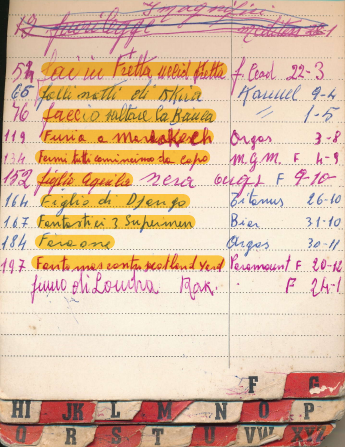 52 fai in Fretta, uccidi fretta f. Cead. 22-3
65 folli notti di Kramel 9-4
76 faccio saltare la Banca " 1-5
119 Furia a Marrakech Orgas 3-8
134 Fermi tutti cominciamo da capo M.G.M. F 4-9
152 figlio Aquila nera F 9-10
164 Figlio di Django Titanus 26-10
167 Fantastici 3 Supermen Bier 31-10
184 Faraone Orgas 30-11
197 Fantomas contro scotland Yard Paramount F 20-12
fumo di Londra Rak. F 24-1
F G
HI JK L M N O P
Q R S T U VW XYZ